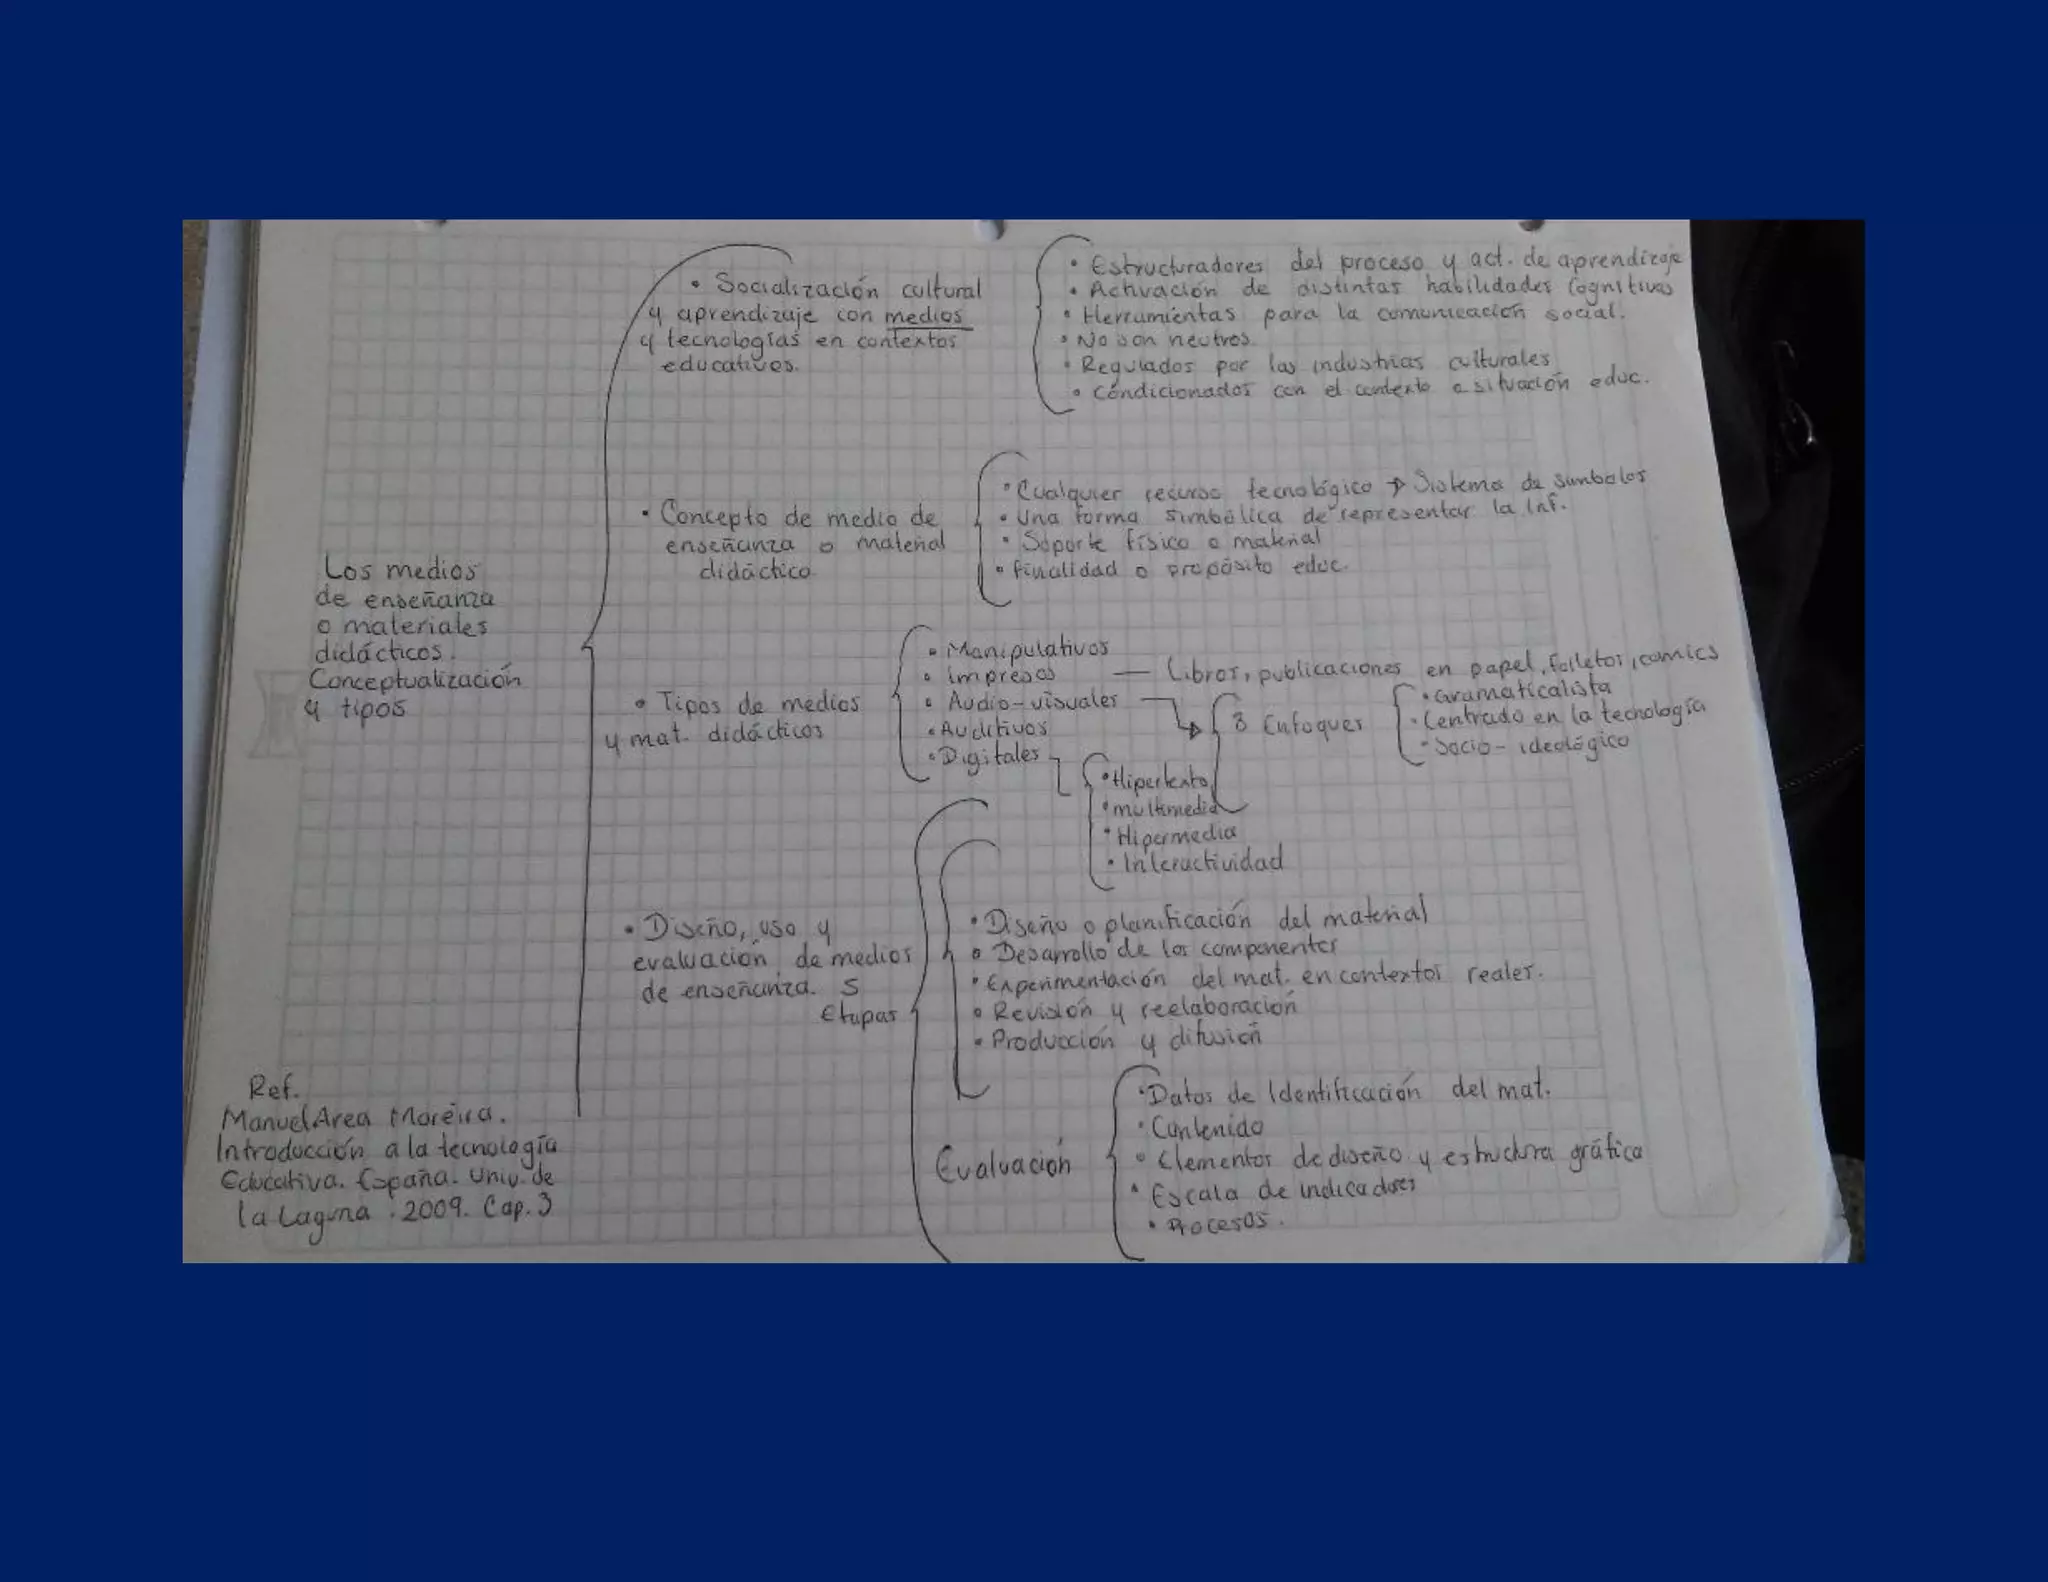 Los medios
de enseñanza
o materiales
didácticos.
Conceptualización
y tipos
• Socialización cultural
y aprendizaje con medios
y tecnologías en contextos
educativos.
• Estructuradores del proceso y act. de aprendizaje
• Activación de distintas habilidades cognitivas
• Herramientas para la comunicación social.
• No son neutros
• Regulados por las industrias culturales
• Condicionados con el contexto o situación educ.
• Concepto de medio de
enseñanza o material
didáctico
• Cualquier recurso tecnológico → Sistema de símbolos
• Una forma simbólica de representar la inf.
• Soporte físico o material
• finalidad o propósito educ.
• Tipos de medios
y mat. didácticos
• Manipulativos
• Impresos — Libros, publicaciones en papel, folletos, comics
• Audio-visuales
• Auditivos
• Digitales
3 Enfoques
• Gramaticalista
• Centrado en la tecnología
• Socio-ideológico
• Hipertexto
• multimedia
• Hipermedia
• Interactividad
• Diseño, uso y
evaluación de medios
de enseñanza. 5
Etapas
• Diseño o planificación del material
• Desarrollo de los componentes
• Experimentación del mat. en contextos reales.
• Revisión y reelaboración
• Producción y difusión
Evaluación
• Datos de Identificación del mat.
• Contenido
• Elementos de diseño y estructura gráfica
• Escala de indicadores
• Procesos.
Ref.
Manuel Area Moreira.
Introducción a la tecnología
Educativa. España. Univ. de
la Laguna. 2009. Cap. 3